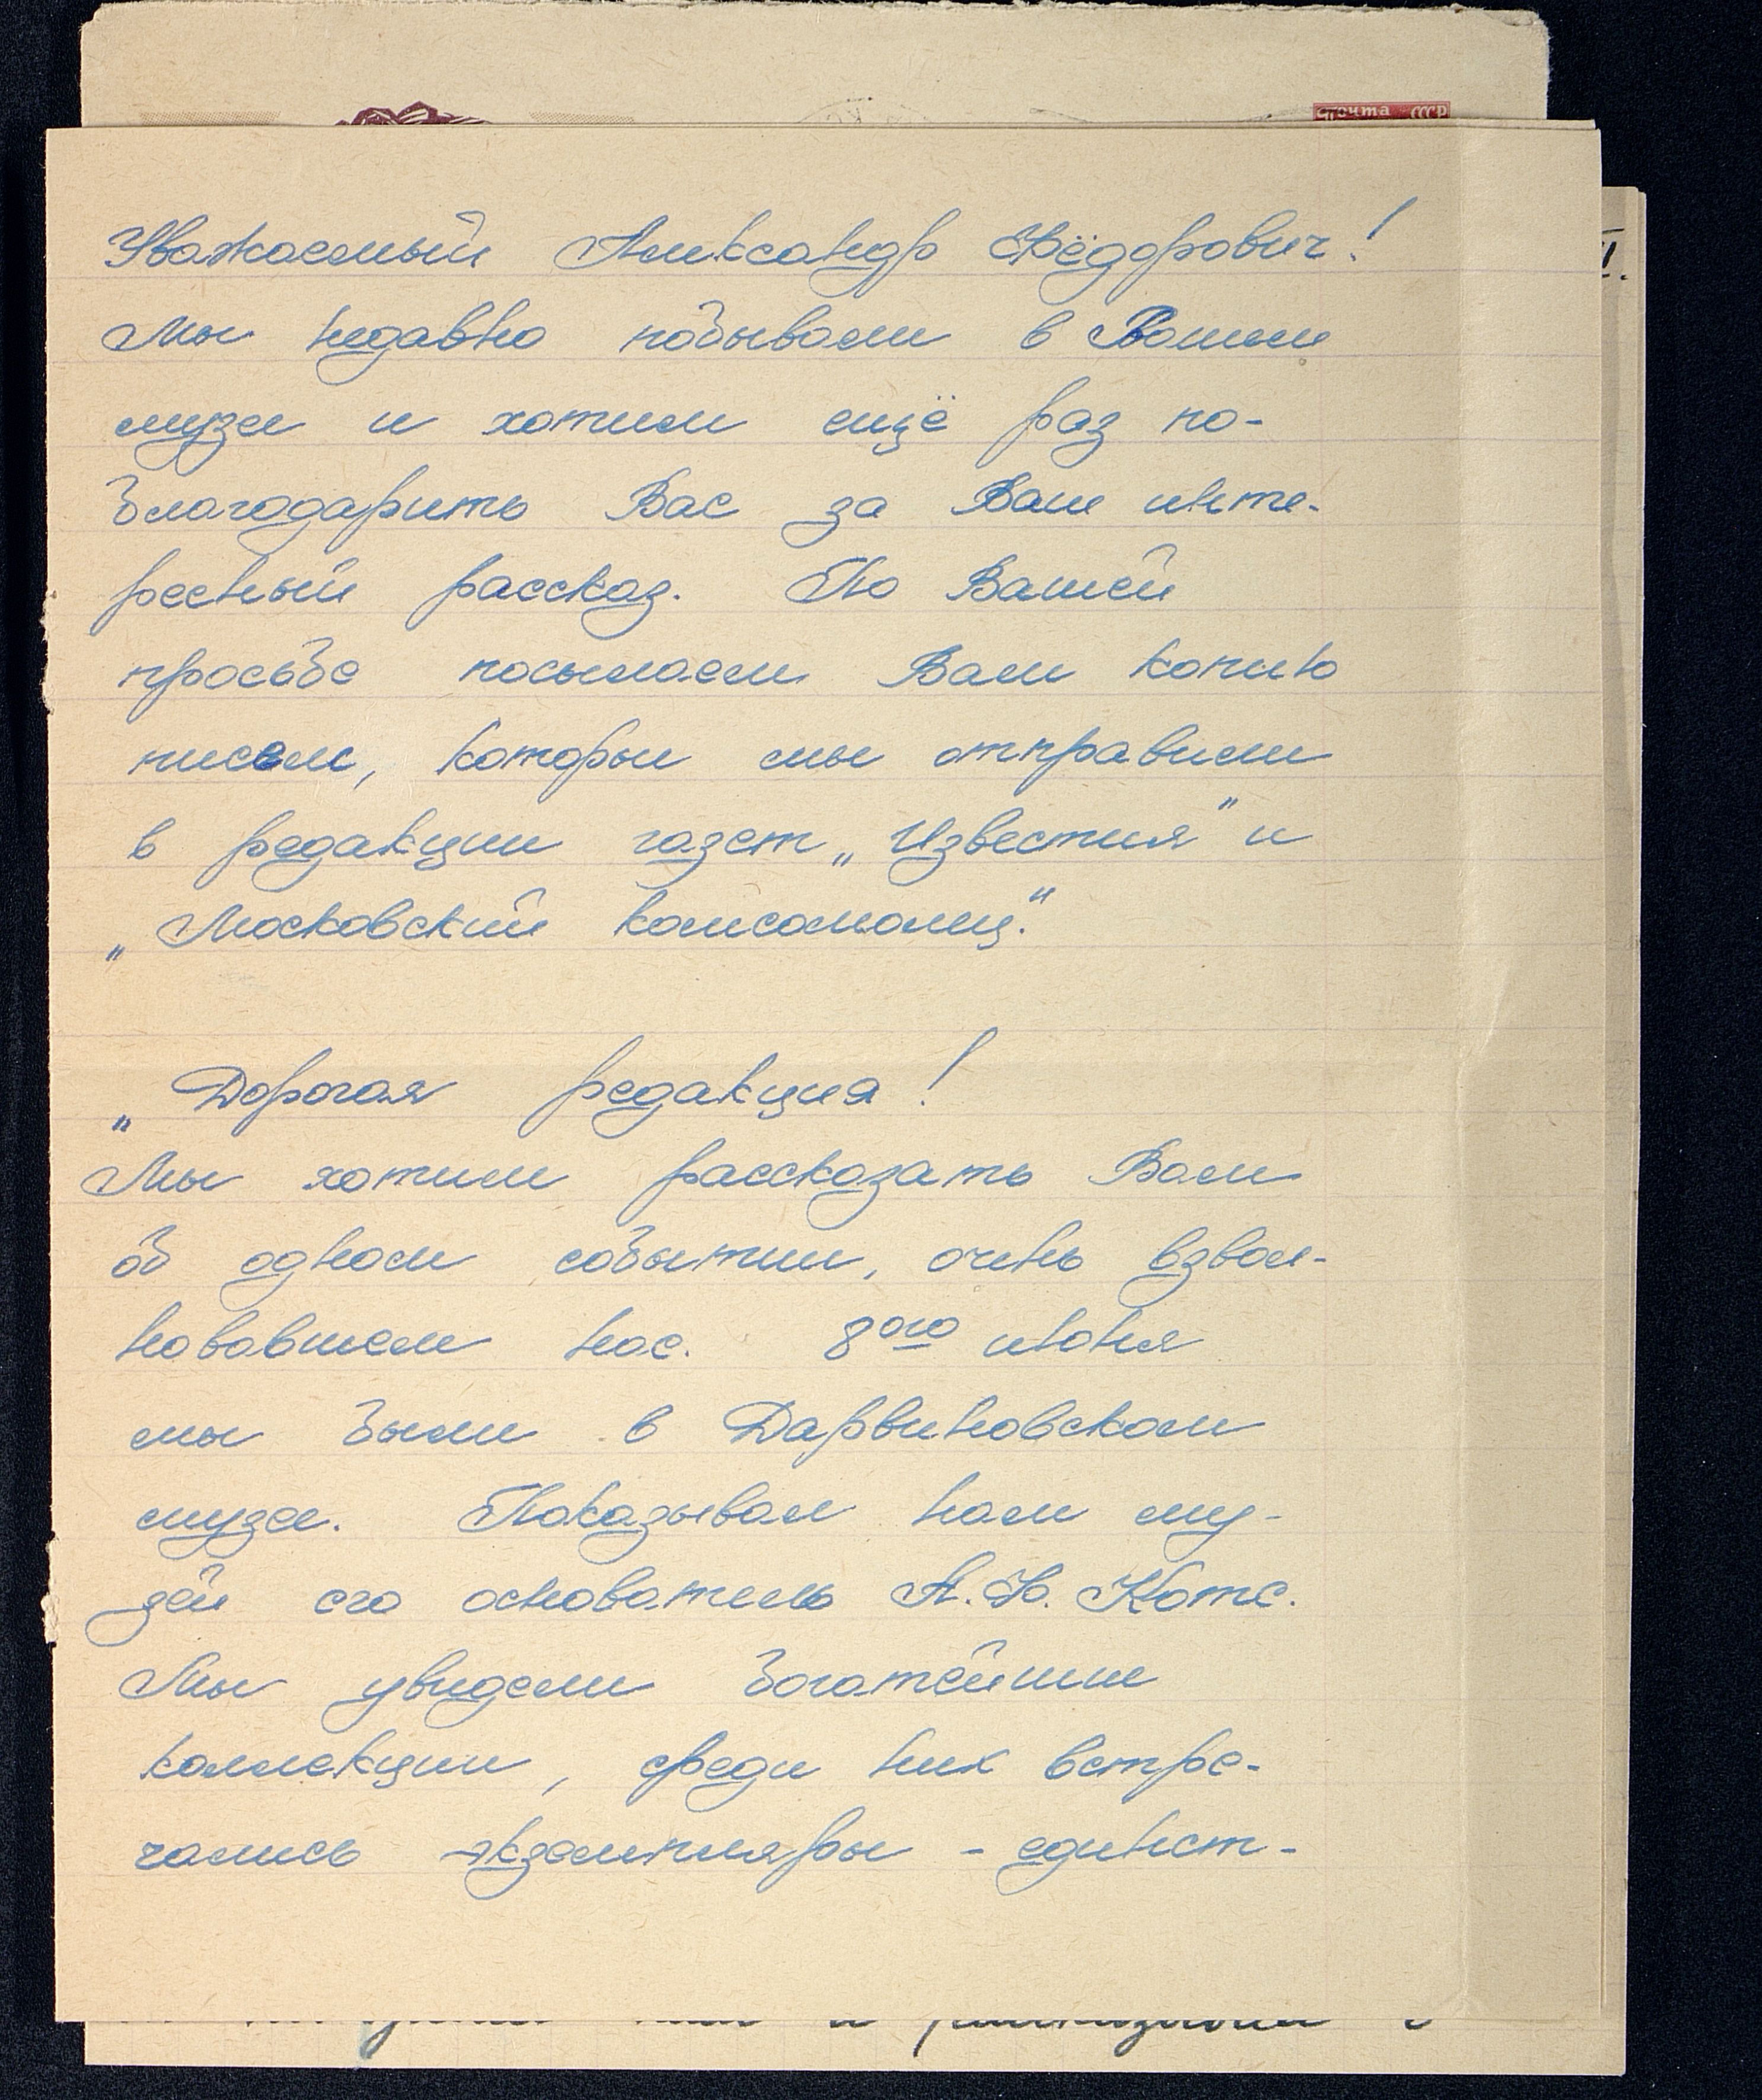 Почта СССР
Уважаемый Александр Фёдорович!
Мы недавно побывали в Вашем
музее и хотим ещё раз по-
благодарить Вас за Ваш инте-
ресный рассказ. По Вашей
просьбе посылаем Вам копию
писем, которые мы отправили
в редакции газет „Известия" и
„Московский комсомолец."
„Дорогая редакция!
Мы хотим рассказать Вам
об одном событии, очень взвол-
новавшем нас. 8ого июня
мы были в Дарвиновском
музее. Показывал нам му-
зей его основатель А.Ф. Котс.
Мы увидели богатейшие
коллекции, среди них встре-
чались экземпляры - единст-